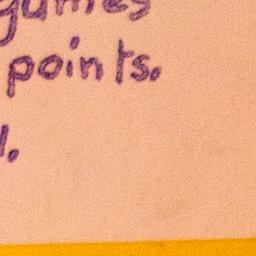 games
points.